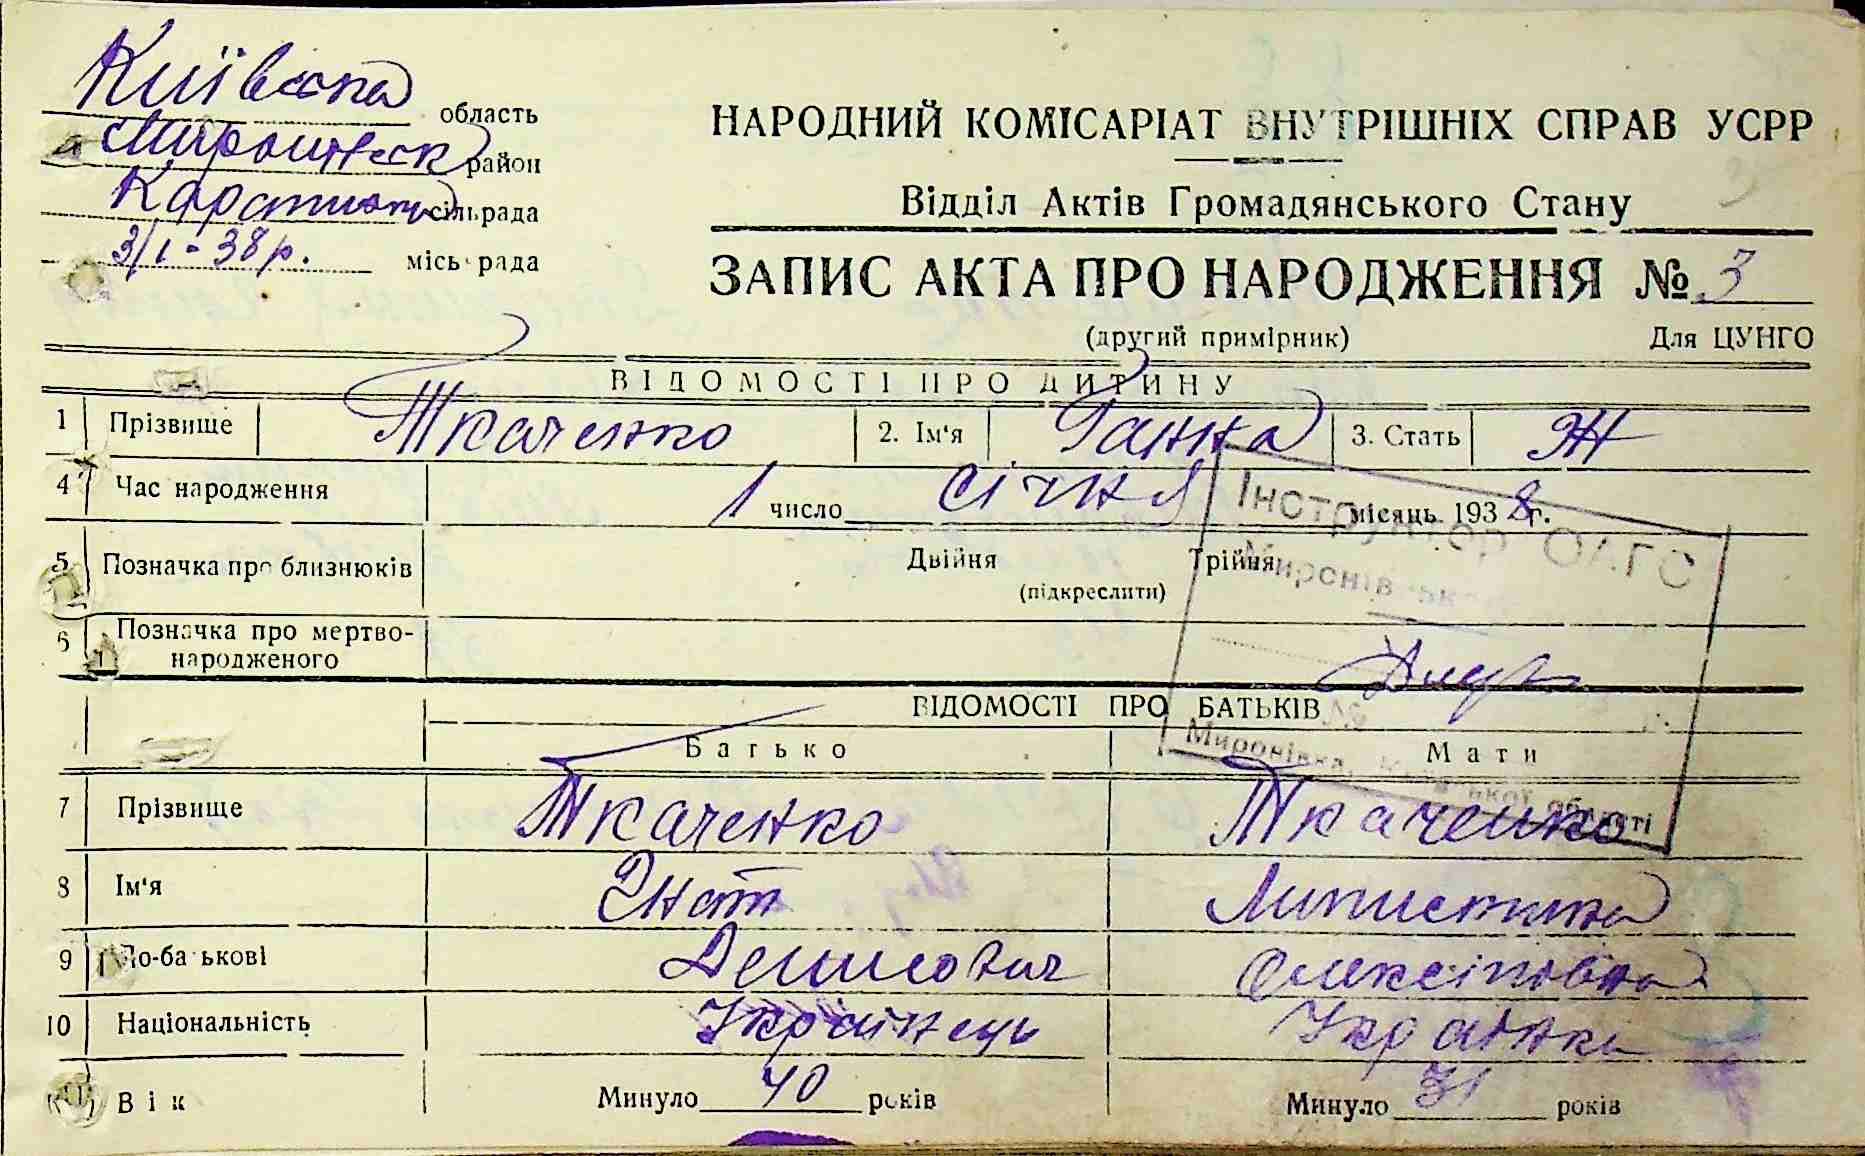 Київська область
Миронівськ район
Карапиши сільрада
3/I - 38 р. місьрада
НАРОДНИЙ КОМІСАРІАТ ВНУТРІШНІХ СПРАВ УСРР
Відділ Актів Громадянського Стану
3
ЗАПИС АКТА ПРО НАРОДЖЕННЯ № 3
(другий примірник) Для ЦУНГО
ВІДОМОСТІ ПРО ДИТИНУ
1 Прізвище Ткаченко 2. Ім'я Ганна 3. Стать Ж
4 Час народження 1 число січня місяць 1938 г.
Інструктор ОАГС
5 Позначка про близнюків Двійня Трійня
(підкреслити)
6 Позначка про мертво-
народженого
ВІДОМОСТІ ПРО БАТЬКІВ
Батько Мати
Миронівка, Київської області
7 Прізвище Ткаченко Ткаченко
8 Ім'я Гнат
9 По-батькові Денисович Олексіївна
10 Національність Українець Українка
11 Вік Минуло 40 років Минуло 31 років